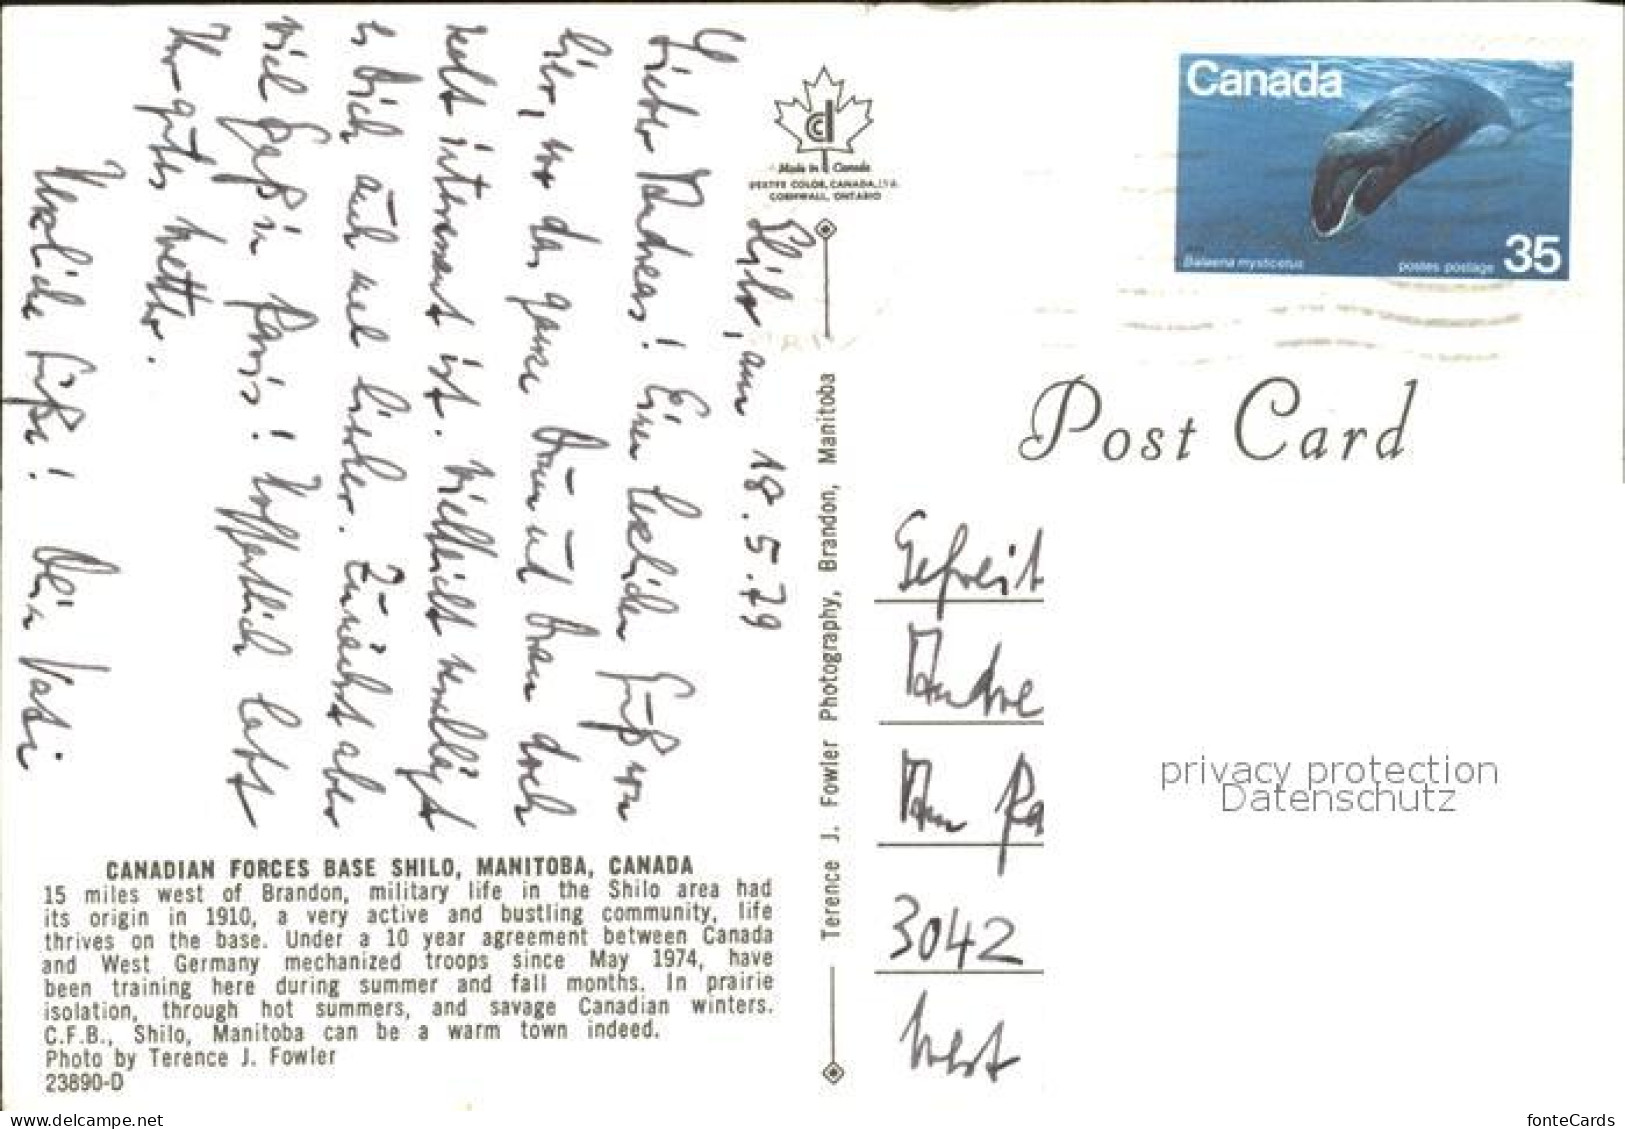 Shilo, am 18.5.79
Lieber Andreas! Einen herzlichen Gruß von
hier, wo das ganze Drum und Dran doch
recht interessant ist. Vielleicht verschlägt
es Dich auch mal hierher. Zunächst aber
viel Spaß in Paris! Hoffentlich habt
Ihr gutes Wetter.
Herzliche Grüße! Dein Vati
CANADIAN FORCES BASE SHILO, MANITOBA, CANADA
15 miles west of Brandon, military life in the Shilo area had
its origin in 1910, a very active and bustling community, life
thrives on the base. Under a 10 year agreement between Canada
and West Germany mechanized troops since May 1974, have
been training here during summer and fall months. In prairie
isolation, through hot summers, and savage Canadian winters.
C.F.B., Shilo, Manitoba can be a warm town indeed.
Photo by Terence J. Fowler
23890-D
Made in Canada
DEXTER COLOR, CANADA, LTD.
CORNWALL, ONTARIO
Terence J. Fowler Photography, Brandon, Manitoba
Canada
Balaena mysticetus
postes postage
35
Post Card
Gefreit
Andre
Am Ra
3042
West
privacy protection
Datenschutz
www.delcampe.net
fonteCards